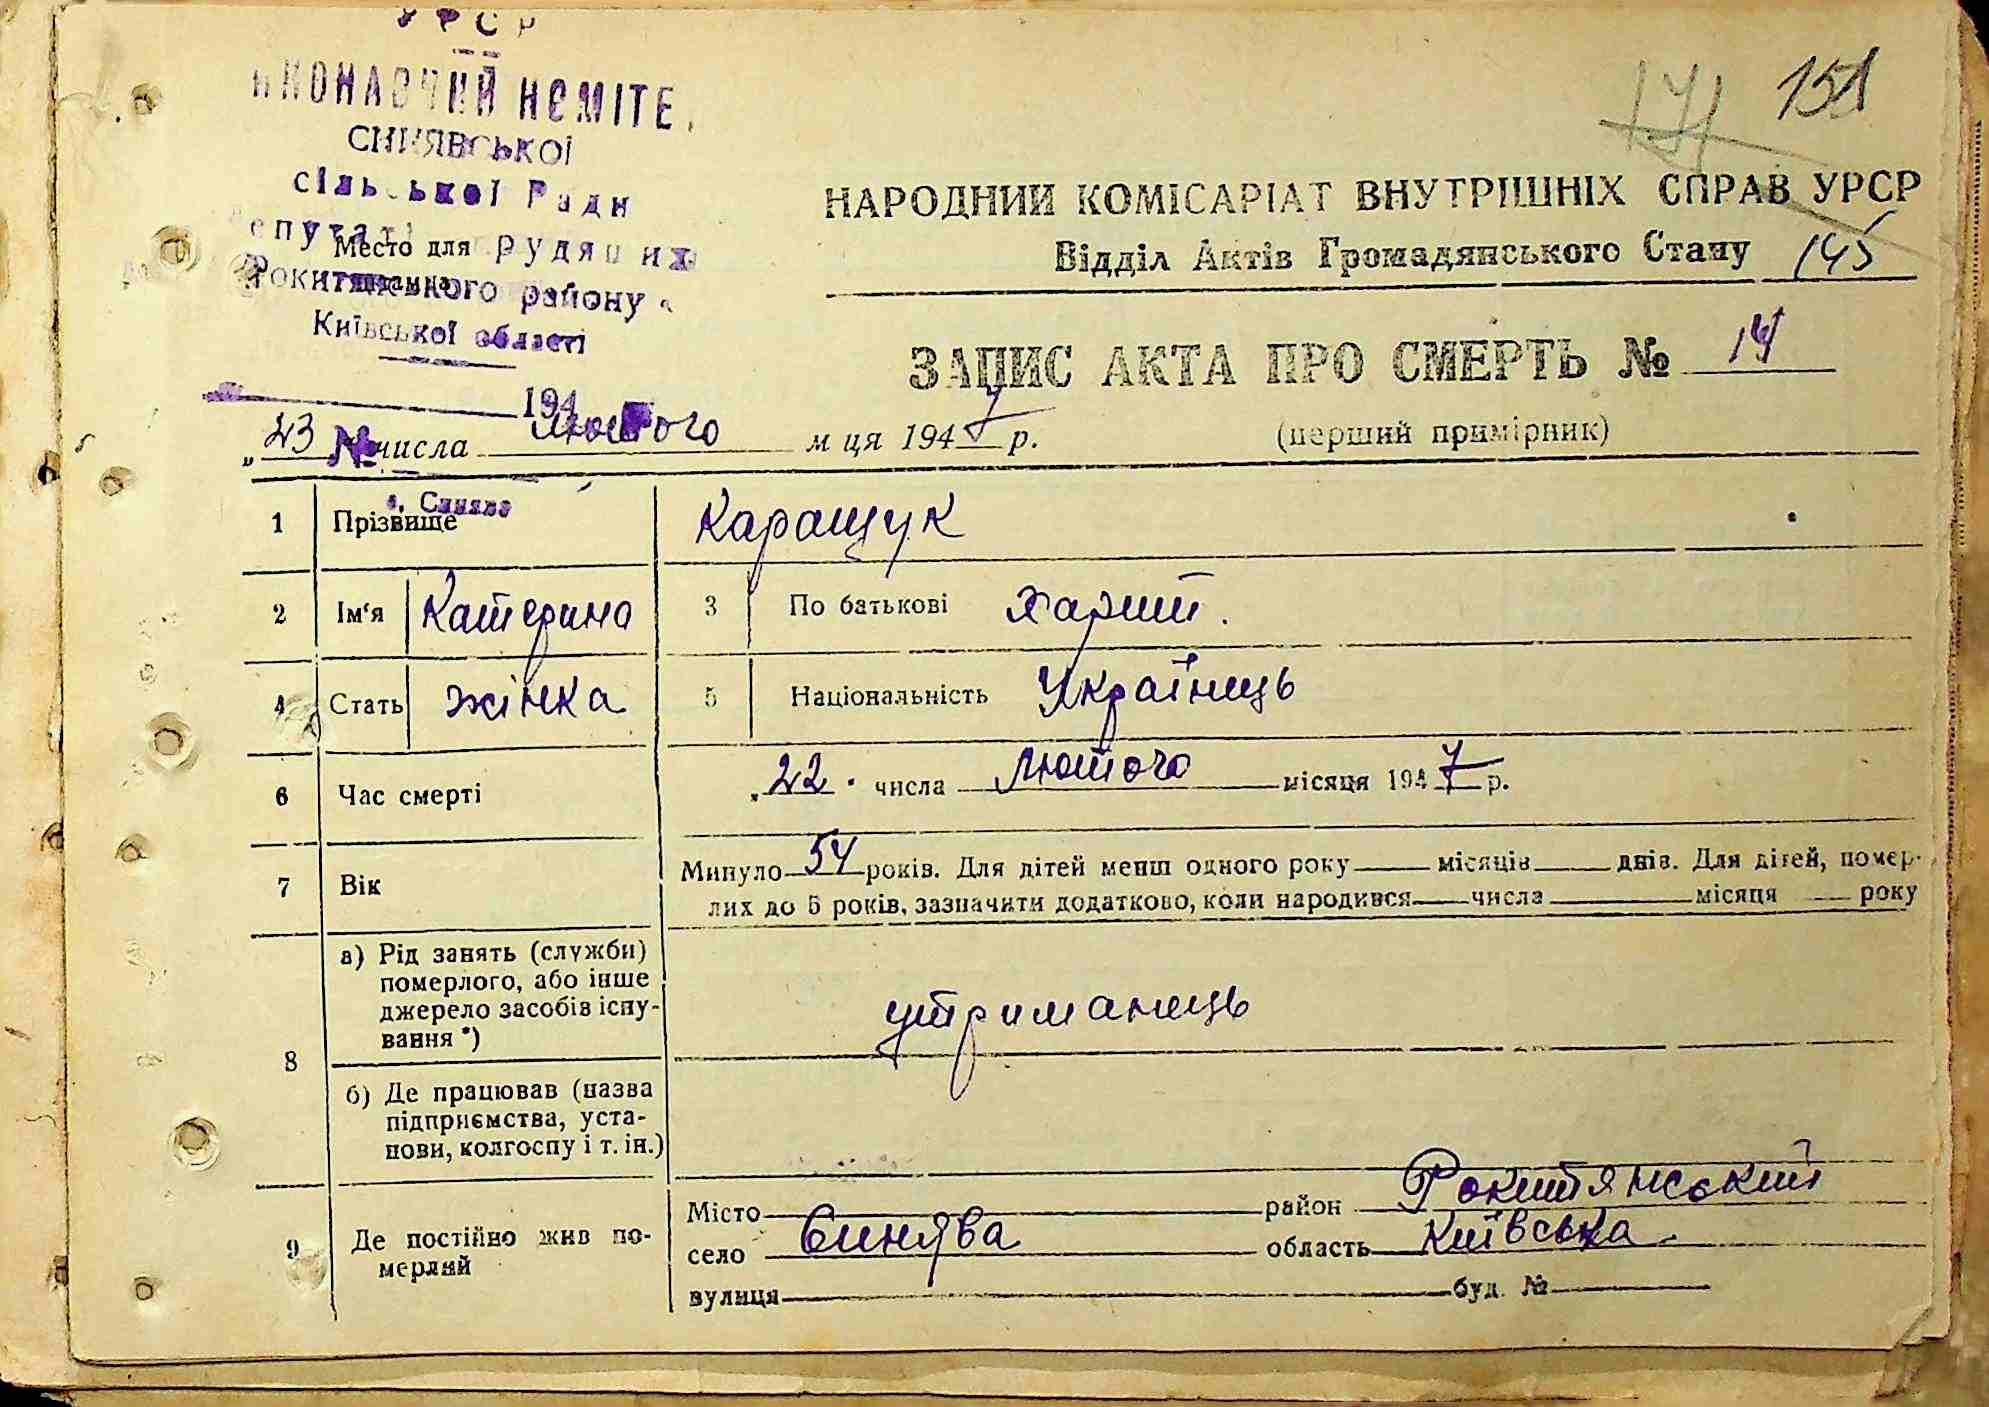 УРСР
ВИКОНАВЧИЙ КОМІТЕ
СИНЯВСЬКОЇ
сільської Ради
депутатів трудящих
Место для
штампа
Рокитянського району
Київської області
194
№
с. Синява
151
НАРОДНИЙ КОМІСАРІАТ ВНУТРІШНІХ СПРАВ УРСР
Відділ Актів Громадянського Стану 145
ЗАПИС АКТА ПРО СМЕРТЬ № 14
„23 числа лютого м ця 1947 р. (перший примірник)
1 Прізвище Каращук
2 Ім'я Катерина 3 По батькові Харит.
4 Стать жінка 5 Національність Українець
6 Час смерті „22" числа Лютого місяця 1947 р.
7 Вік Минуло 54 років. Для дітей менш одного року місяців днів. Для дітей, помер-
лих до 5 років, зазначити додатково, коли народився числа місяця року
8 а) Рід занять (служби)
померлого, або інше
джерело засобів існу-
вання *)
утриманець
б) Де працював (назва
підприємства, уста-
нови, колгоспу і т. ін.)
9 Де постійно жив по-
мерлий
Місто район Рокитянський
село Синява область Київська
вулиця буд. №